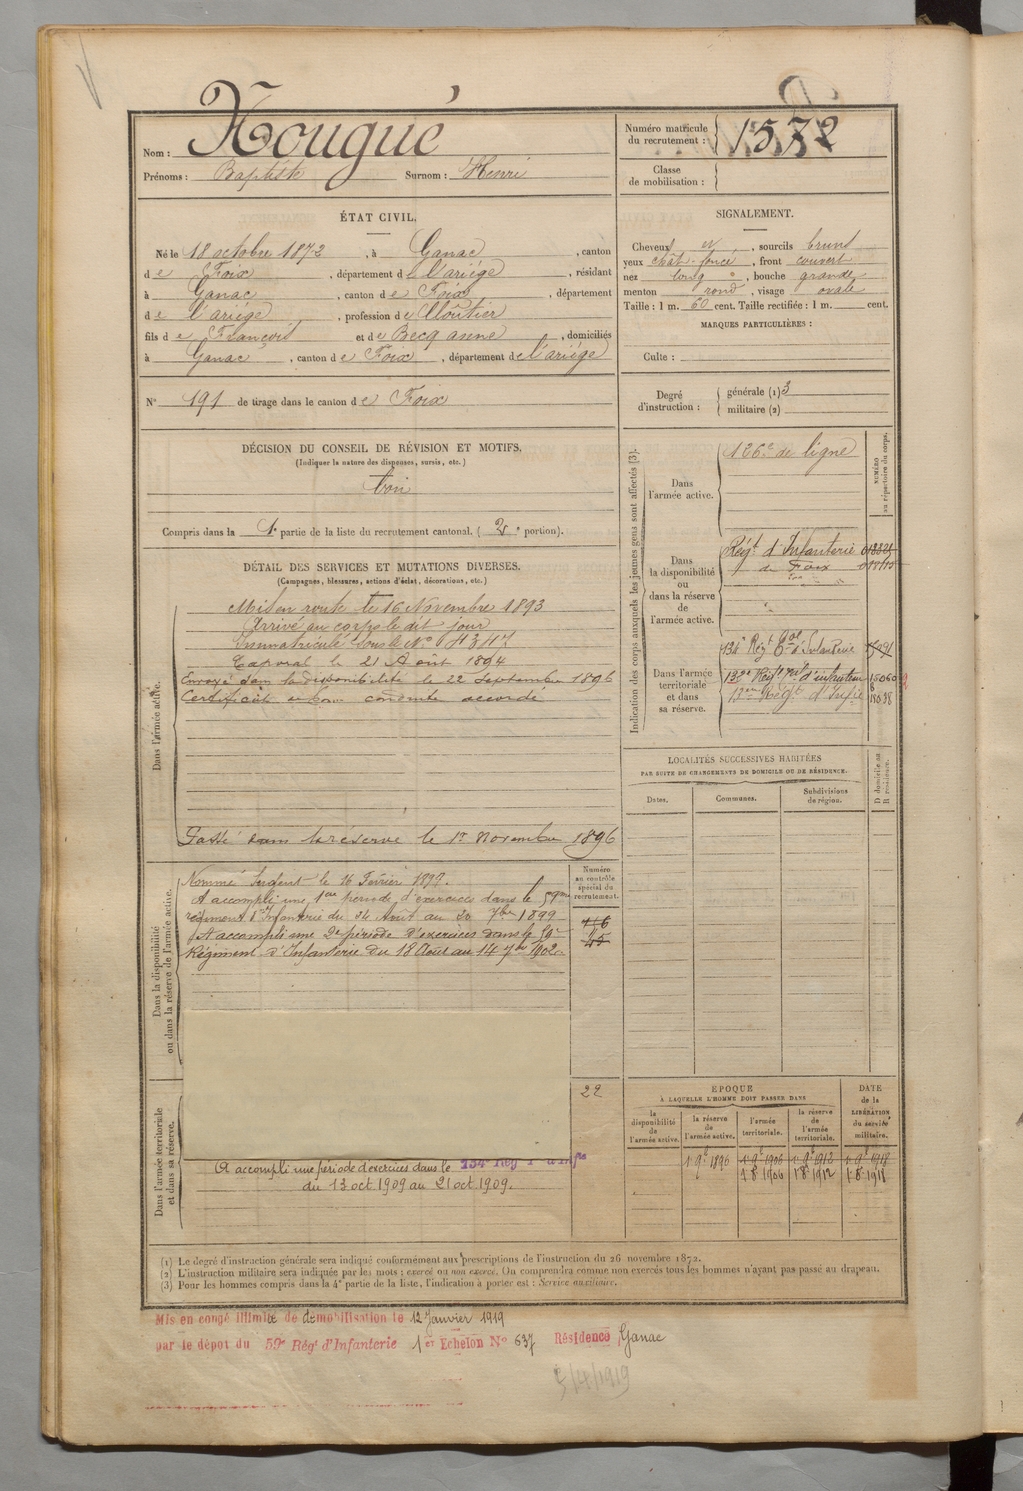 Nom : Nougué
Prénoms : Baptiste Surnom : Henri
Numéro matricule du recrutement : 1572
Classe de mobilisation :
ÉTAT CIVIL.
Né le 18 octobre 1872, à Ganac, canton
de Foix, département de l'ariége, résidant
à Ganac, canton de Foix, département
de l'ariége, profession de Cloutier
fils de François et de Becq anne, domiciliés
à Ganac, canton de Foix, département de l'ariége
N° 191 de tirage dans le canton de Foix
SIGNALEMENT.
Cheveux et, sourcils bruns
yeux chât. foncé, front couvert
nez long, bouche grande
menton rond, visage ovale
Taille : 1 m. 60 cent. Taille rectifiée : 1 m. cent.
MARQUES PARTICULIÈRES :
Culte :
Degré d'instruction : générale (1) 3
militaire (2)
DÉCISION DU CONSEIL DE RÉVISION ET MOTIFS.
(Indiquer la nature des dispenses, sursis, etc.)
bon
Compris dans la 1e partie de la liste du recrutement cantonal. (2e portion).
DÉTAIL DES SERVICES ET MUTATIONS DIVERSES.
(Campagnes, blessures, actions d'éclat, décorations, etc.)
Dans l'armée active.
Mis en route le 16 Novembre 1893
Arrivé au corps le dit jour
Immatriculé sous le N° 4347
Caporal le 21 Août 1894
Envoyé dans la disponibilité le 22 Septembre 1896
Certificat de bonne conduite accordé
Passé dans la réserve le 1er Novembre 1896
Dans la disponibilité ou dans la réserve de l'armée active.
Nommé Sergent le 16 Février 1897.
A accompli une 1ère période d'exercices dans le 59me
régiment d'Infanterie du 24 Août au 20 7bre 1899
A accompli une 2e période d'exercices dans le 59e
Régiment d'Infanterie du 18 Août au 14 7bre 1902.
Numéro au contrôle spécial du recrutement.
116
45
22
Dans l'armée territoriale et dans sa réserve.
A accompli une période d'exercices dans le 134e Rég t d'Infie
du 13 oct. 1909 au 21 oct 1909.
Indication des corps auxquels les jeunes gens sont affectés (3).
NUMÉRO au répertoire du corps.
Dans l'armée active.
126e de ligne
Dans la disponibilité ou dans la réserve de l'armée active.
Régt. d'Infanterie
de Foix
Dans l'armée territoriale et dans sa réserve.
134e Régt Tal d'Infanterie
132e Régt Tal d'infanterie 15060
18038
LOCALITÉS SUCCESSIVES HABITÉES
PAR SUITE DE CHANGEMENTS DE DOMICILE OU DE RÉSIDENCE.
Dates. Communes. Subdivisions de région. D domicile ou R résidence.
ÉPOQUE
À LAQUELLE L'HOMME DOIT PASSER DANS
la disponibilité de l'armée active. la réserve de l'armée active. l'armée territoriale. la réserve de l'armée territoriale.
DATE de la LIBÉRATION du service militaire.
1 9e 1896 1 9e 1906 1 9e 1912 1 9e 1918
1 8e 1906 1 8e 1912 1 8e 1918
(1) Le degré d'instruction générale sera indiqué conformément aux prescriptions de l'instruction du 26 novembre 1872.
(2) L'instruction militaire sera indiquée par les mots : exercé ou non exercé. On comprendra comme non exercés tous les hommes n'ayant pas passé au drapeau.
(3) Pour les hommes compris dans la 4e partie de la liste, l'indication à porter est : Service auxiliaire.
Mis en congé illimité de démobilisation le 12 Janvier 1919
par le dépot du 59e Régt d'Infanterie 1er Echelon N° 637 Résidence Ganac
5/4/1919